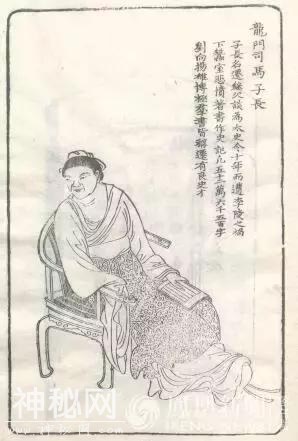 龍門司馬子長
子長名遷繼父談為太史令十年而遭李陵之禍
下蠶室悲憤著書作史記凡五十二萬六千五百字
劉向揚雄博極羣書皆稱遷有良史才
神秘网